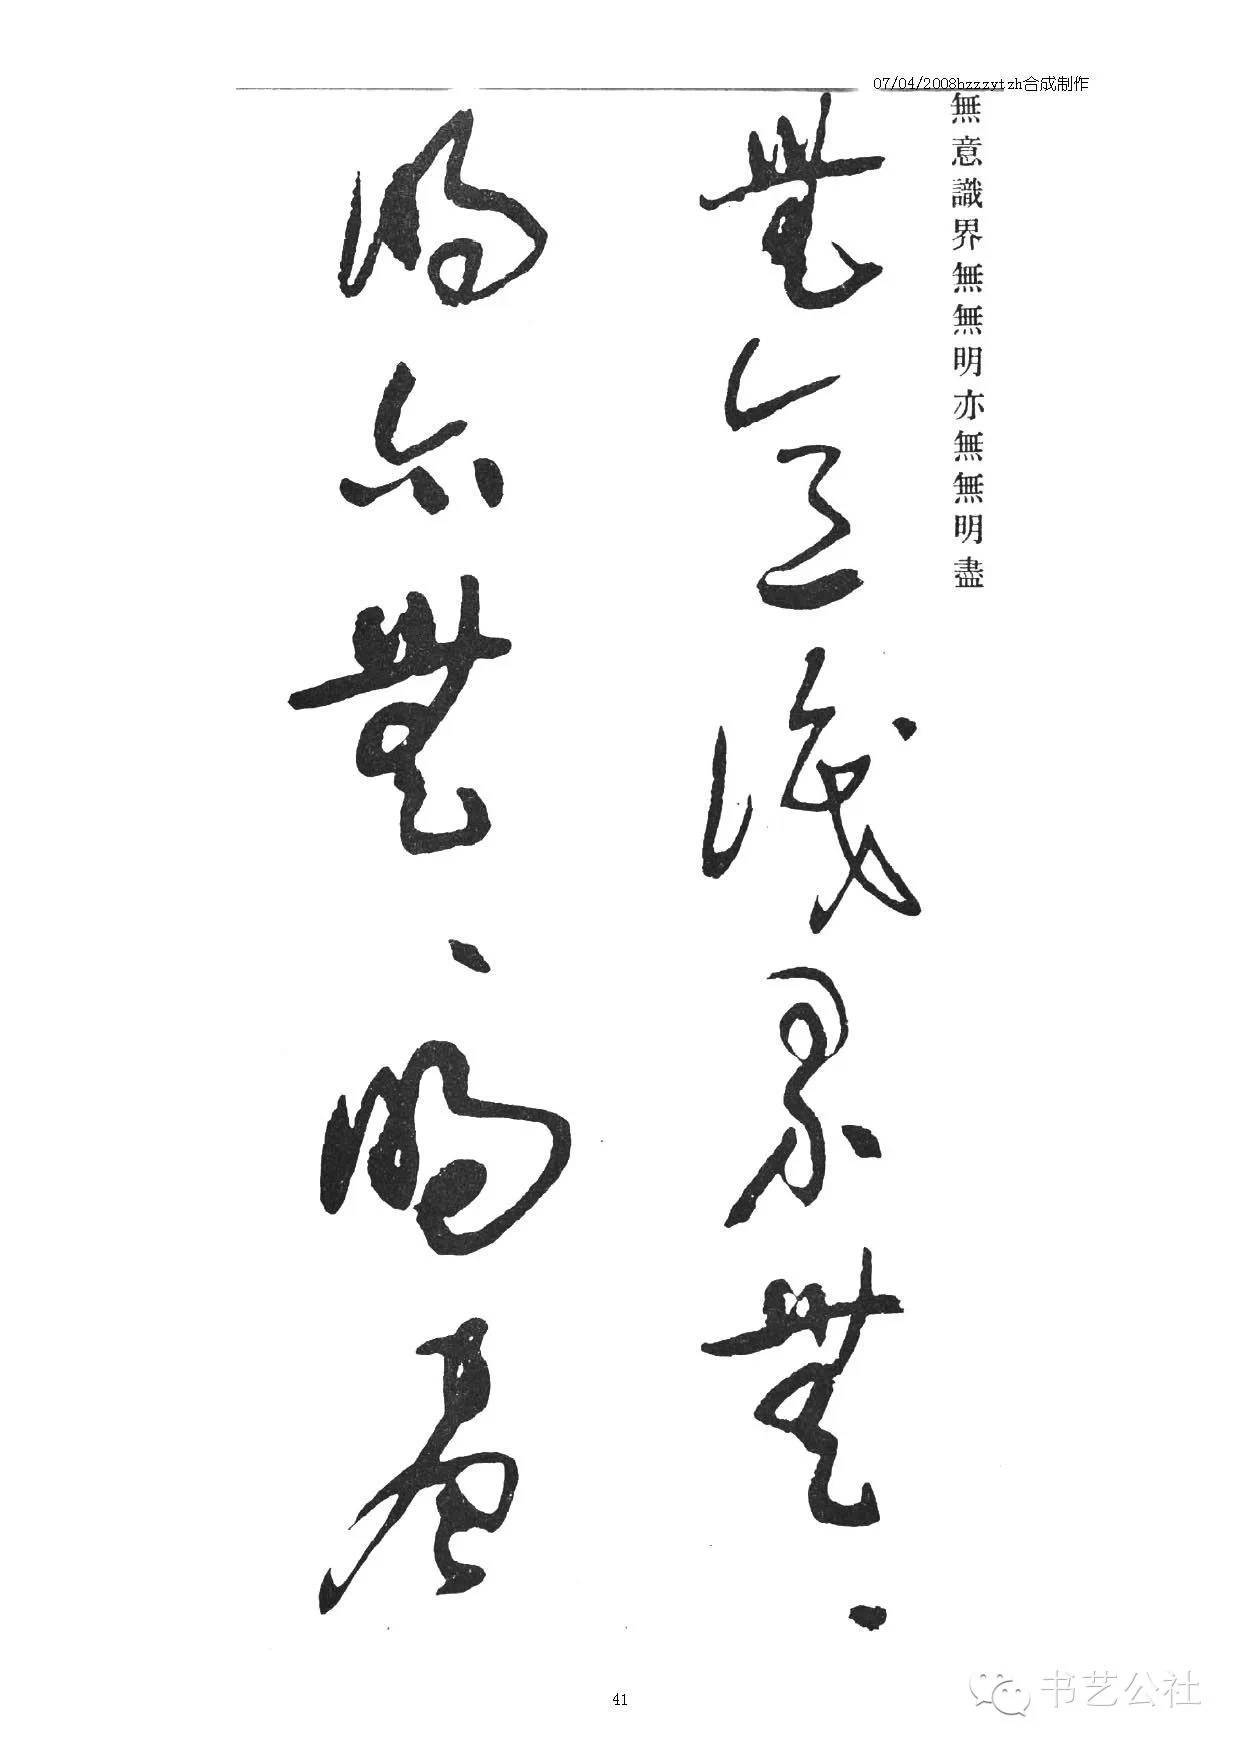 07/04/2008hzzzytzh合成制作
無意識界無無明亦無無明盡
無意識界無、
明亦無、明盡
41
书艺公社